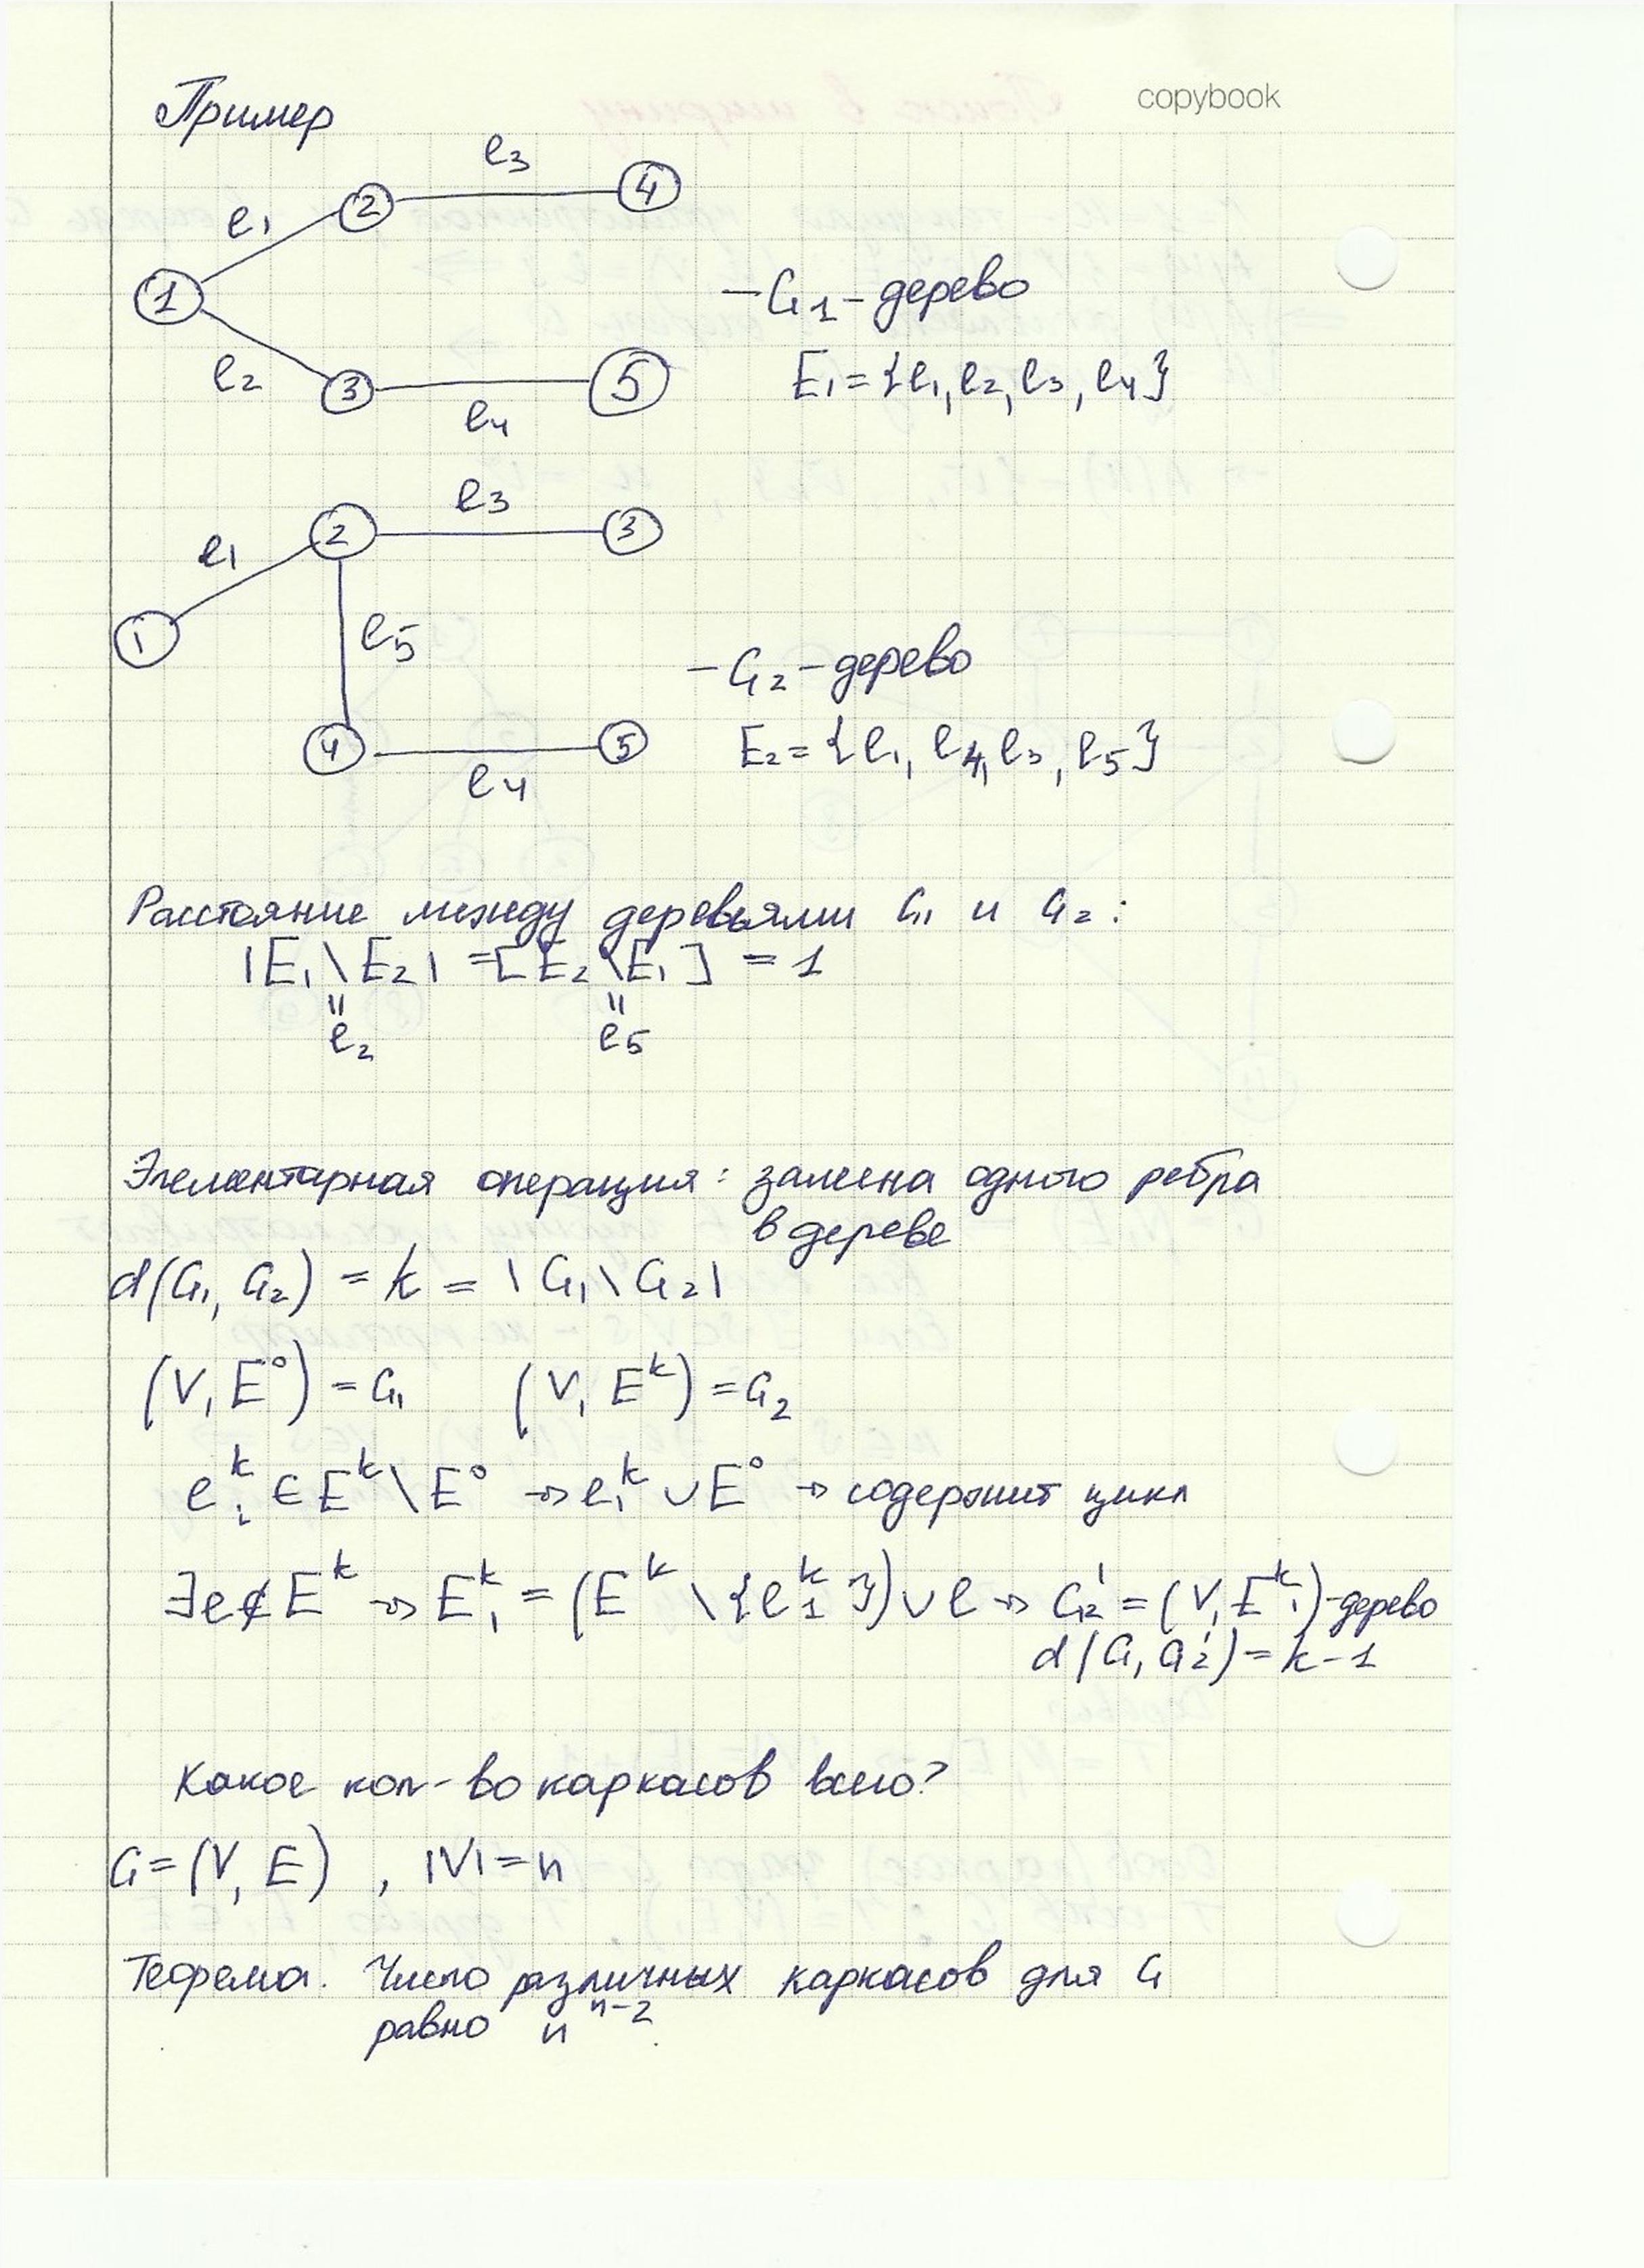 copybook
Пример
e3
2 4
e1
1
-G1-дерево
e2
3 5
E1={e1,e2,e3,e4}
e4
e3
2 3
e1
1
e5
-G2-дерево
4 5
E2={e1,e4,e3,e5}
e4
Расстояние между деревьями G1 и G2:
|E1\E2| =[E2\E1] = 1
" "
e2 e5
Элементарная операция: замена одного ребра
в дереве
d(G1, G2) = k = |G1\G2|
(V, E⁰) = G1 (V, Eᵏ) = G2
e₁ᵏ ∈ Eᵏ\E⁰ → e₁ᵏ ∪ E⁰ → содержит цикл
∃e∉Eᵏ → E₁ᵏ = (Eᵏ \{e₁ᵏ}) ∪ e → G2' = (V, E₁ᵏ)-дерево
d(G, G2') = k-1
Какое кол-во каркасов всего?
G=(V, E) , |V|=n
Теорема. Число различных каркасов для G
равно nⁿ⁻².